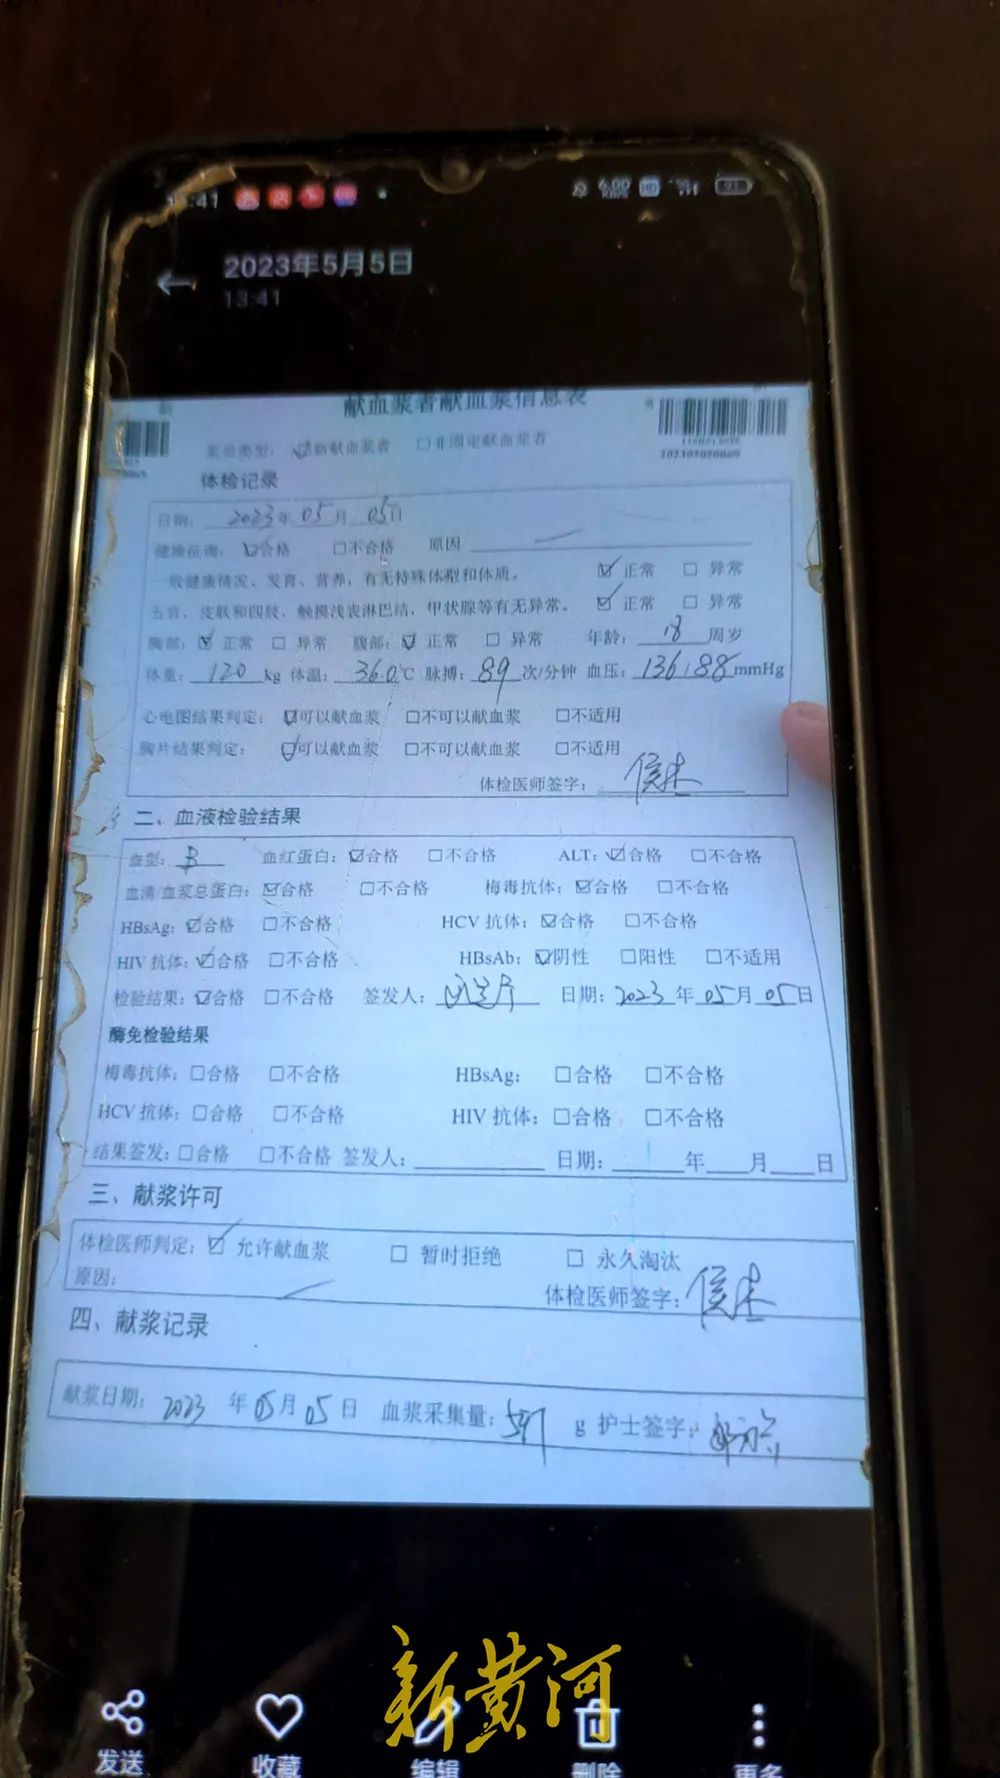 :41
6.00 KB/S HD
2023年5月5日
13:41
献血浆者献血浆信息表
浆员类型: ☑新献血浆者 ☐非固定献血浆者
体检记录
日期: 2023年 05月 05日
健康征询: ☑合格 ☐不合格 原因
一般健康情况、发育、营养，有无特殊体型和体质。 ☑ 正常 ☐ 异常
五官、皮肤和四肢、触摸浅表淋巴结，甲状腺等有无异常。 ☑ 正常 ☐ 异常
胸部: ☑ 正常 ☐ 异常 腹部: ☑ 正常 ☐ 异常 年龄: 18 周岁
体重: 120 kg 体温: 36.0℃ 脉搏: 89 次/分钟 血压: 136/88 mmHg
心电图结果判定: ☑可以献血浆 ☐不可以献血浆 ☐不适用
胸片结果判定: ☑可以献血浆 ☐不可以献血浆 ☐不适用
体检医师签字:
二、血液检验结果
血型: B 血红蛋白: ☑合格 ☐不合格 ALT: ☑合格 ☐不合格
血清/血浆总蛋白: ☑合格 ☐不合格 梅毒抗体: ☑合格 ☐不合格
HBsAg: ☑合格 ☐不合格 HCV 抗体: ☑合格 ☐不合格
HIV 抗体: ☑合格 ☐不合格 HBsAb: ☑阴性 ☐阳性 ☐不适用
检验结果: ☑合格 ☐不合格 签发人: 日期: 2023 年 05月 05日
酶免检验结果
梅毒抗体: ☐合格 ☐不合格 HBsAg: ☐合格 ☐不合格
HCV 抗体: ☐合格 ☐不合格 HIV 抗体: ☐合格 ☐不合格
结果签发: ☐合格 ☐不合格 签发人: 日期: 年 月 日
三、献浆许可
体检医师判定: ☑ 允许献血浆 ☐ 暂时拒绝 ☐ 永久淘汰
原因:
体检医师签字:
四、献浆记录
献浆日期: 2023 年 05月 05 日 血浆采集量: g 护士签字:
新黄河
发送 收藏 编辑 删除 更多